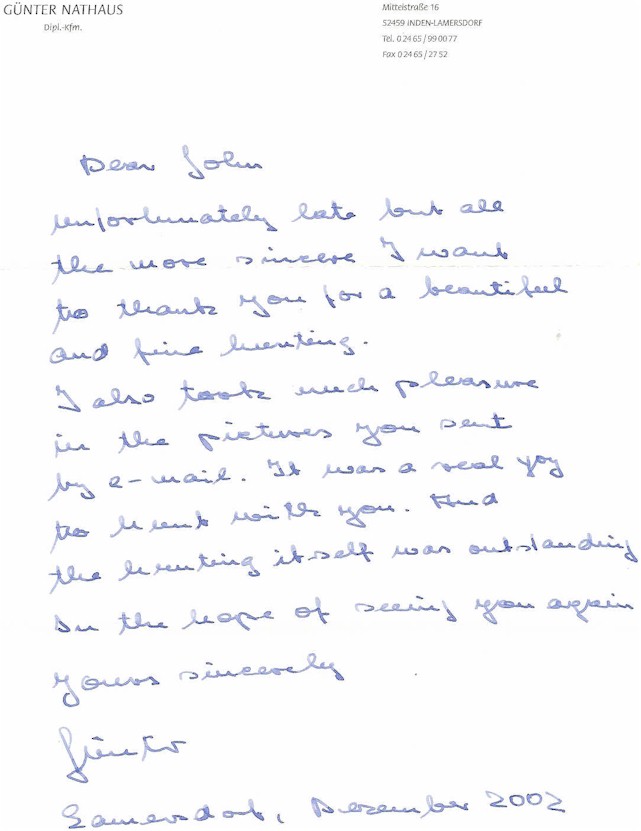 GÜNTER NATHAUS
Dipl.-Kfm.
Mittelstraße 16
52459 INDEN-LAMERSDORF
Tel. 0 24 65 / 99 00 77
Fax 0 24 65 / 27 52
Dear John
unfortunately late but all
the more sincere I want
to thank you for a beautiful
and fine hunting.
I also took much pleasure
in the pictures you sent
by e-mail. It was a real yoy
to hunt with you. And
the hunting itself was outstanding
In the hope of seeing you again
yours sincerely
Günter
Lamersdorf, Dezember 2002